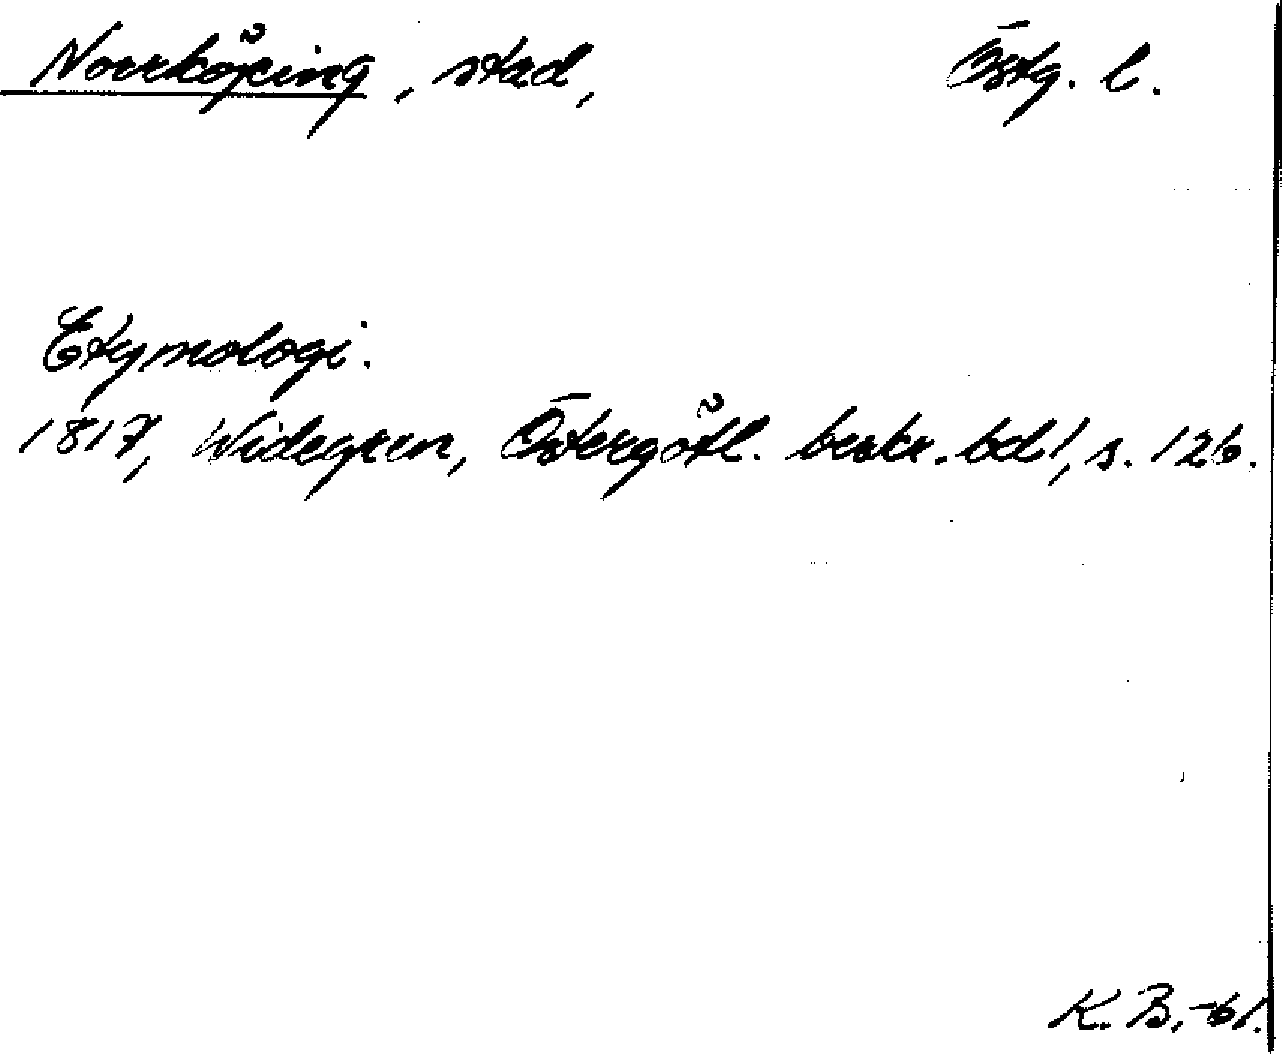 Norrköping, stad, Östg. l.
Etymologi.
1817, Widegren, Östergötl. beskr. bd 1, s. 126.
K. B. -61.